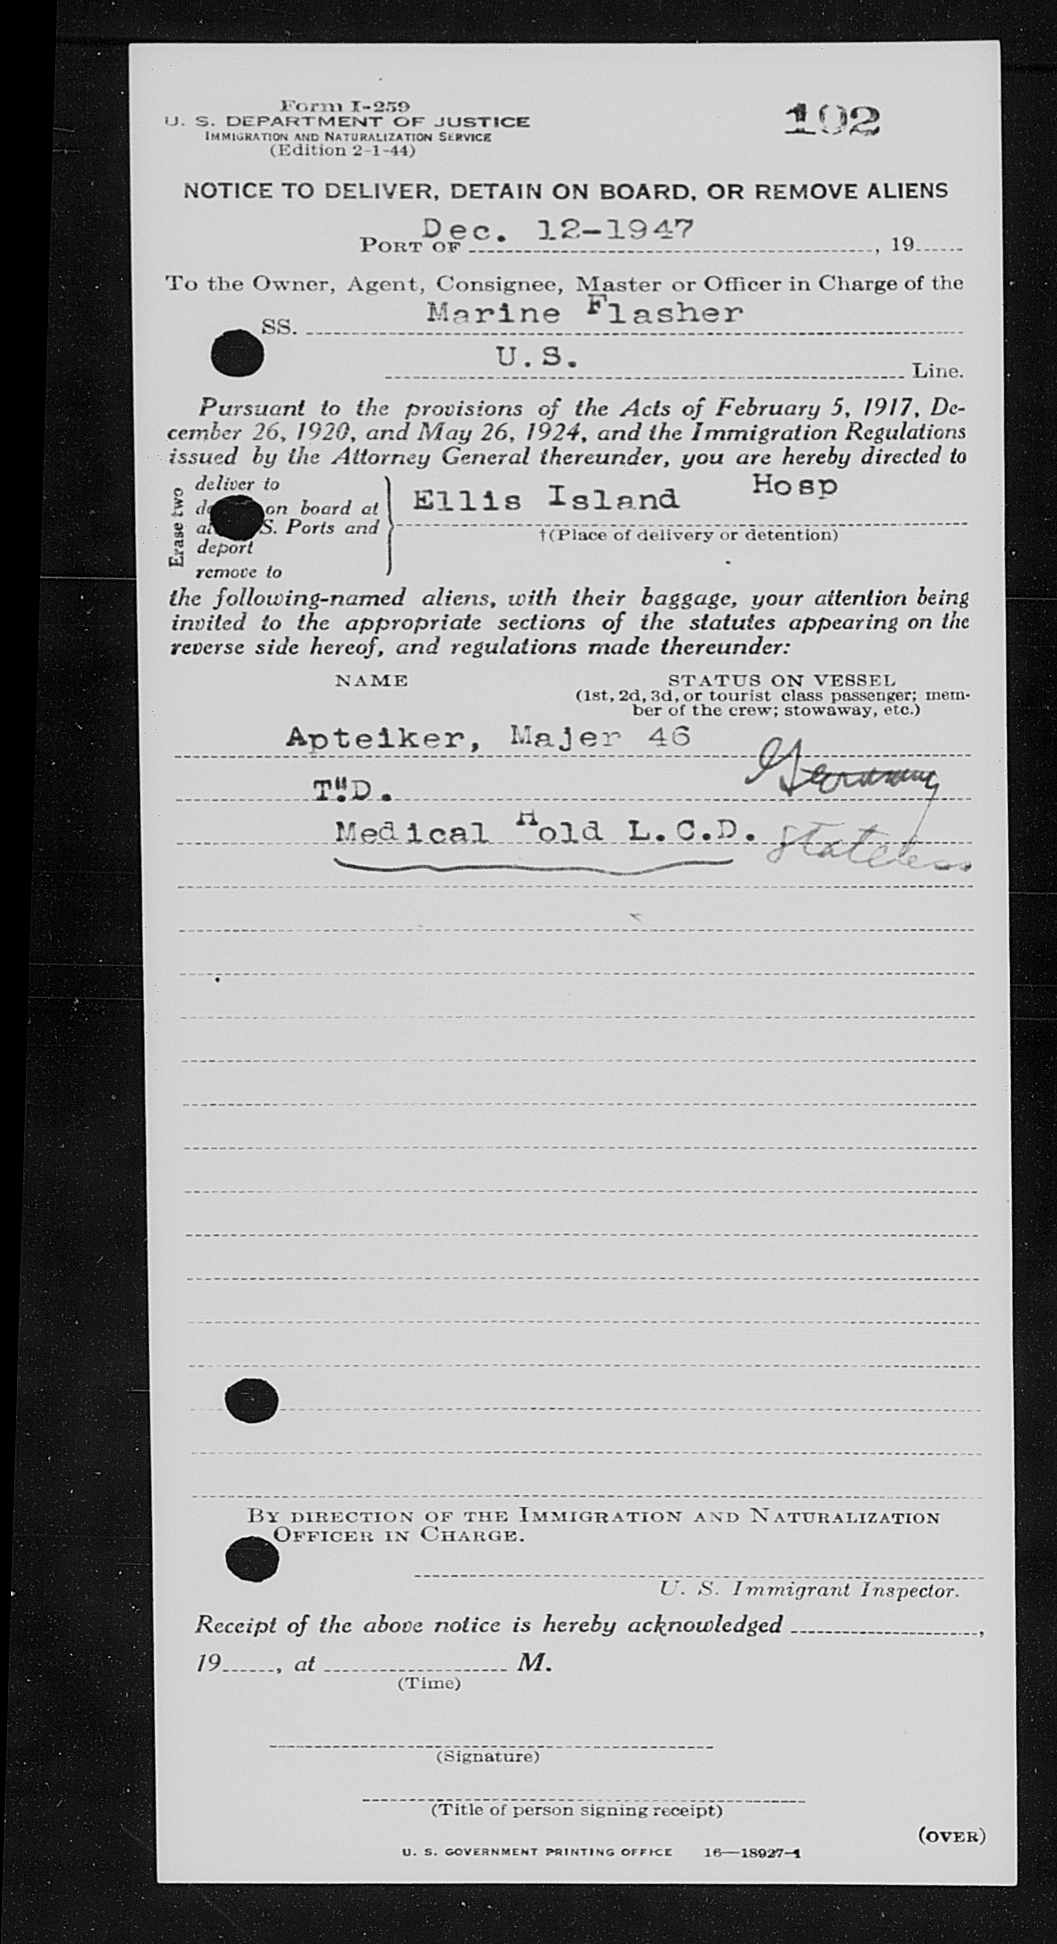 Form I-259
U. S. DEPARTMENT OF JUSTICE
IMMIGRATION AND NATURALIZATION SERVICE
(Edition 2-1-44)
102
NOTICE TO DELIVER, DETAIN ON BOARD, OR REMOVE ALIENS
Dec. 12-1947
PORT OF , 19
To the Owner, Agent, Consignee, Master or Officer in Charge of the
SS. Marine Flasher
U.S. Line.
Pursuant to the provisions of the Acts of February 5, 1917, De-
cember 26, 1920, and May 26, 1924, and the Immigration Regulations
issued by the Attorney General thereunder, you are hereby directed to
Erase two
deliver to
on board at
S. Ports and
deport
remove to
Ellis Island Hosp
†(Place of delivery or detention)
the following-named aliens, with their baggage, your attention being
invited to the appropriate sections of the statutes appearing on the
reverse side hereof, and regulations made thereunder:
NAME STATUS ON VESSEL
(1st, 2d, 3d, or tourist class passenger; mem-
ber of the crew; stowaway, etc.)
Apteiker, Majer 46
T.D. Germany
Medical Hold L.C.D. Stateless
BY DIRECTION OF THE IMMIGRATION AND NATURALIZATION
OFFICER IN CHARGE.
U. S. Immigrant Inspector.
Receipt of the above notice is hereby acknowledged ,
19 , at M.
(Time)
(Signature)
(Title of person signing receipt)
(OVER)
U. S. GOVERNMENT PRINTING OFFICE 16—18927-1